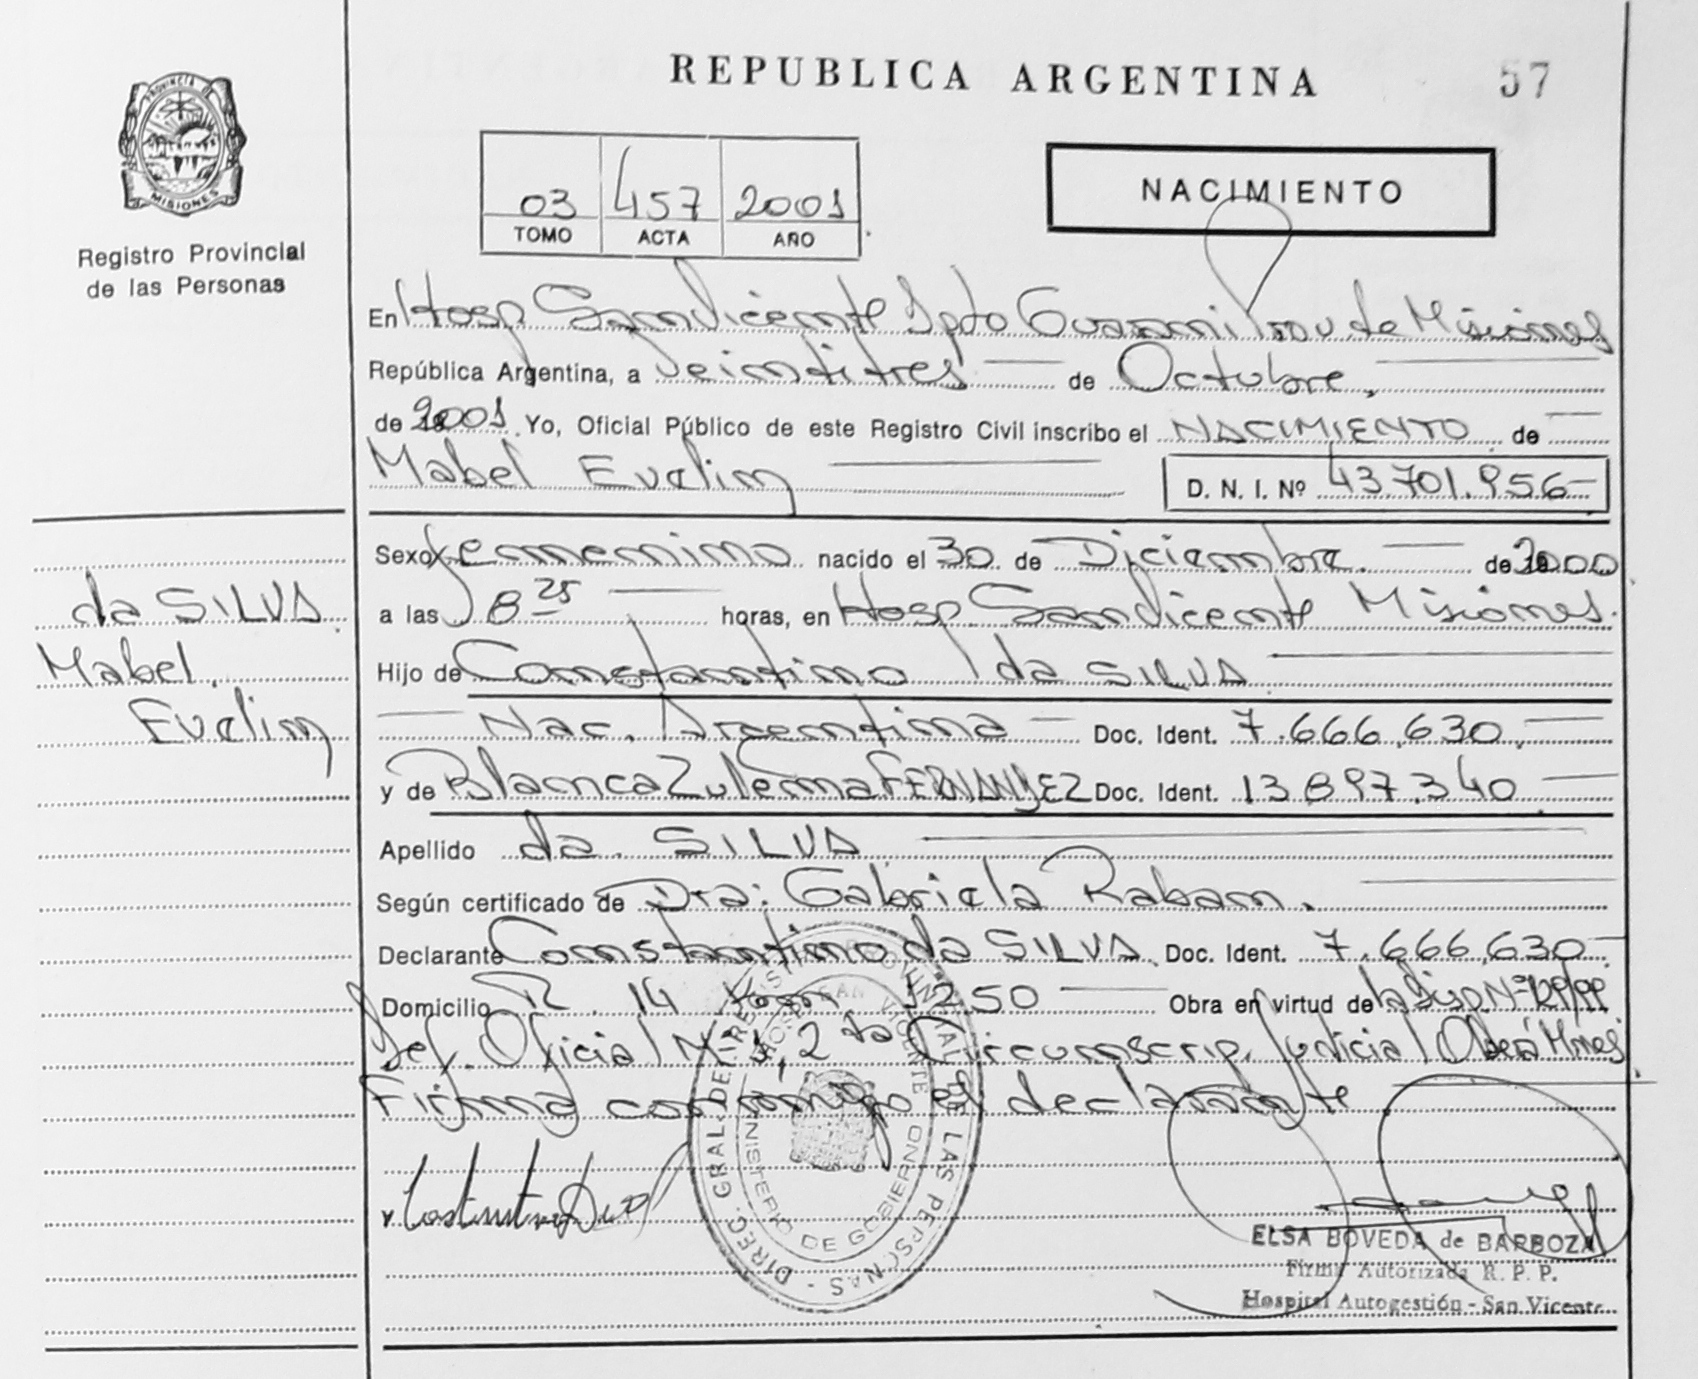 REPUBLICA ARGENTINA 57
PROVINCIA DE MISIONES
Registro Provincial
de las Personas
03 457 2001
TOMO ACTA AÑO
NACIMIENTO
En Hosp San Vicente Dpto Guarani Prov de Misiones
República Argentina, a Veintitres de Octubre,
de 2001 Yo, Oficial Público de este Registro Civil inscribo el NACIMIENTO de
Mabel Evelin D. N. I. Nº 43.701.956
Sexo femenino nacido el 30 de Diciembre de 2000
a las 8 25 horas, en Hosp San Vicente Misiones.
Hijo de Constantino da SILVA
Nac. Argentina Doc. Ident. 7.666.630
y de Blanca Zulema FERNANDEZ Doc. Ident. 13.897.340
Apellido da SILVA
Según certificado de Dra: Gabriela Raban.
Declarante Constantino da SILVA Doc. Ident. 7.666.630
Domicilio R. 14 km 1250 Obra en virtud de
Oficial 2 da Circunscrip. Judicial Oberá Mnes
Firma conmigo el declarante
da SILVA
Mabel
Evelin
DIREC. GRAL. DEL REGISTRO PROVINCIAL DE LAS PERSONAS
HOSP. SAN VICENTE
MINISTERIO DE GOBIERNO
ELSA BOVEDA de BARBOZA
Firma Autorizada R. P. P.
Hospital Autogestión - San Vicente